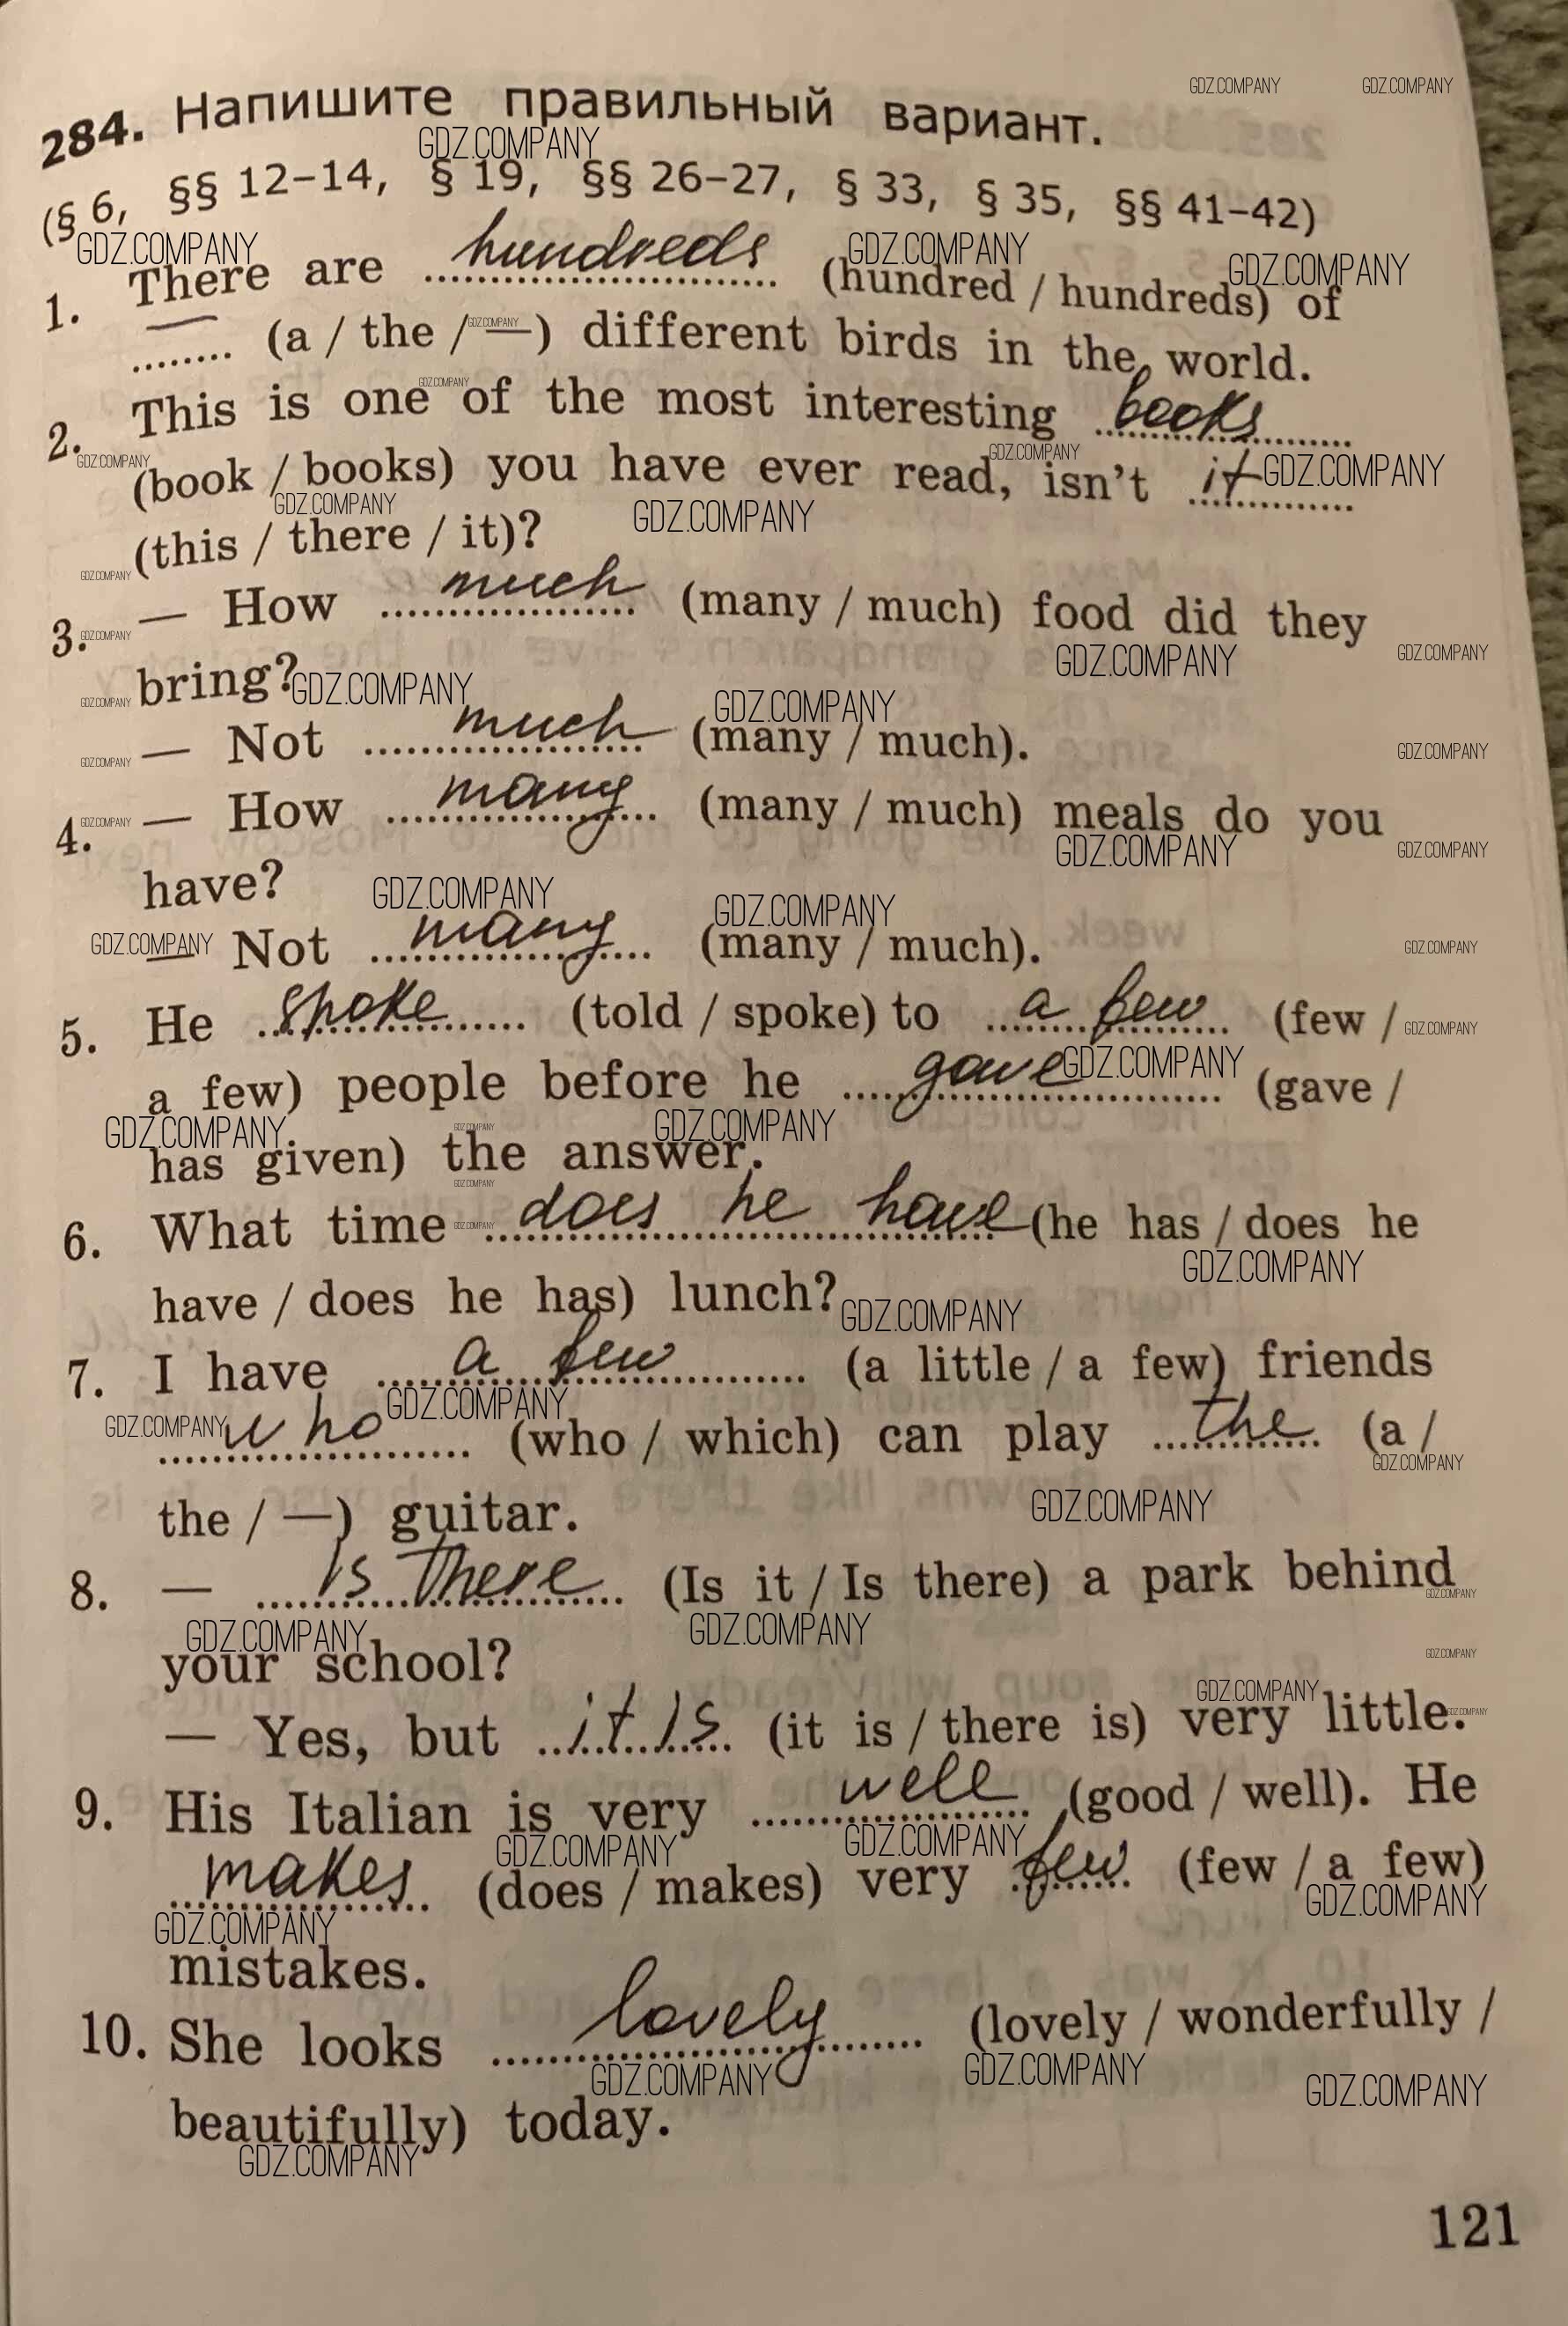 284. Напишите правильный вариант.
(§ 6, §§ 12–14, § 19, §§ 26–27, § 33, § 35, §§ 41–42)
1. There are hundreds (hundred / hundreds) of
— (a / the / —) different birds in the world.
2. This is one of the most interesting books
(book / books) you have ever read, isn't it
(this / there / it)?
3. — How much (many / much) food did they
bring?
— Not much (many / much).
4. — How many (many / much) meals do you
have?
— Not many (many / much).
5. He spoke (told / spoke) to a few (few /
a few) people before he gave (gave /
has given) the answer.
6. What time does he have (he has / does he
have / does he has) lunch?
7. I have a few (a little / a few) friends
who (who / which) can play the (a /
the / —) guitar.
8. — Is there (Is it / Is there) a park behind
your school?
— Yes, but it is (it is / there is) very little.
9. His Italian is very well (good / well). He
makes (does / makes) very few (few / a few)
mistakes.
10. She looks lovely (lovely / wonderfully /
beautifully) today.
121
GDZ.COMPANY